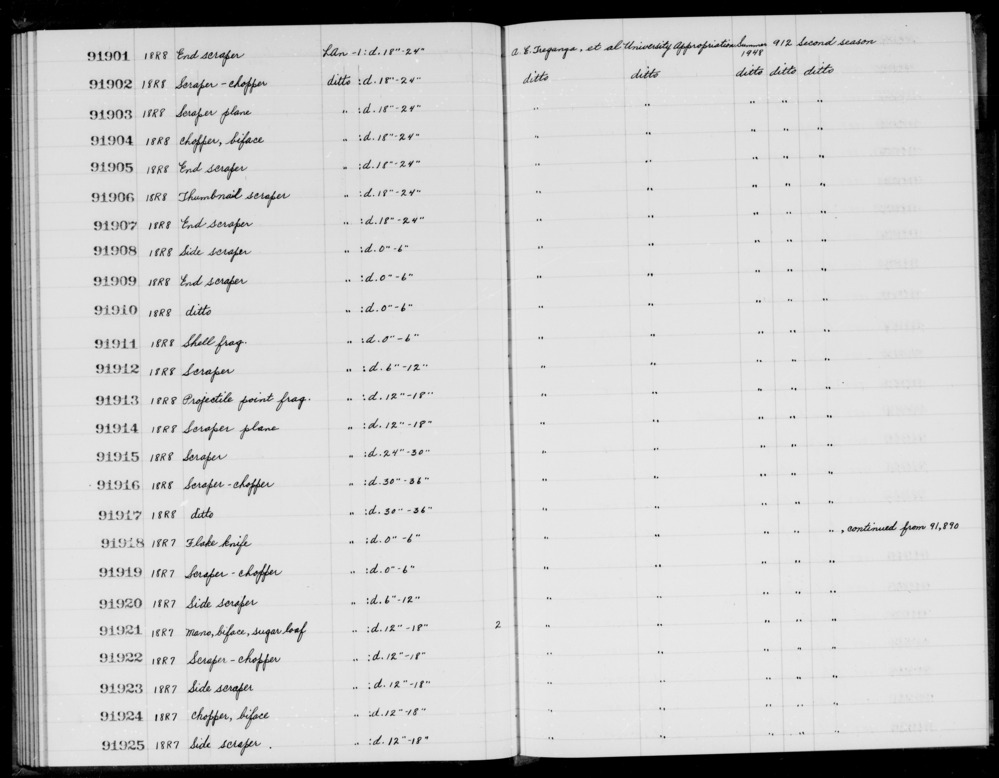 91901 18R8 End scraper LAn -1:d.18"-24" A. E. Treganza, et al University Appropriation Summer 1948 912 Second season
91902 18R8 Scraper-chopper ditto :d.18"-24" ditto ditto ditto ditto ditto
91903 18R8 Scraper plane " :d.18"-24" " " " " "
91904 18R8 Chopper, biface " :d.18"-24" " " " " "
91905 18R8 End scraper " :d.18"-24" " " " " "
91906 18R8 Thumbnail scraper " :d.18"-24" " " " " "
91907 18R8 End scraper " :d.18"-24" " " " " "
91908 18R8 Side scraper " :d.0"-6" " " " " "
91909 18R8 End scraper " :d.0"-6" " " " " "
91910 18R8 ditto " :d.0"-6" " " " " "
91911 18R8 Shell frag. " :d.0"-6" " " " " "
91912 18R8 Scraper " :d.6"-12" " " " " "
91913 18R8 Projectile point frag. " :d.12"-18" " " " " "
91914 18R8 Scraper plane " :d.12"-18" " " " " "
91915 18R8 Scraper " :d.24"-30" " " " " "
91916 18R8 Scraper-chopper " :d.30"-36" " " " " "
91917 18R8 ditto " :d.30"-36" " " " " "
91918 18R7 Flake knife " :d.0"-6" " " " " " , continued from 91,890
91919 18R7 Scraper-chopper " :d.0"-6" " " " " "
91920 18R7 Side scraper " :d.6"-12" " " " " "
91921 18R7 Mano, biface, sugar loaf " :d.12"-18" 2 " " " " "
91922 18R7 Scraper-chopper " :d.12"-18" " " " " "
91923 18R7 Side scraper " :d.12"-18" " " " " "
91924 18R7 Chopper, biface " :d.12"-18" " " " " "
91925 18R7 Side scraper. " :d.12"-18" " " " " "